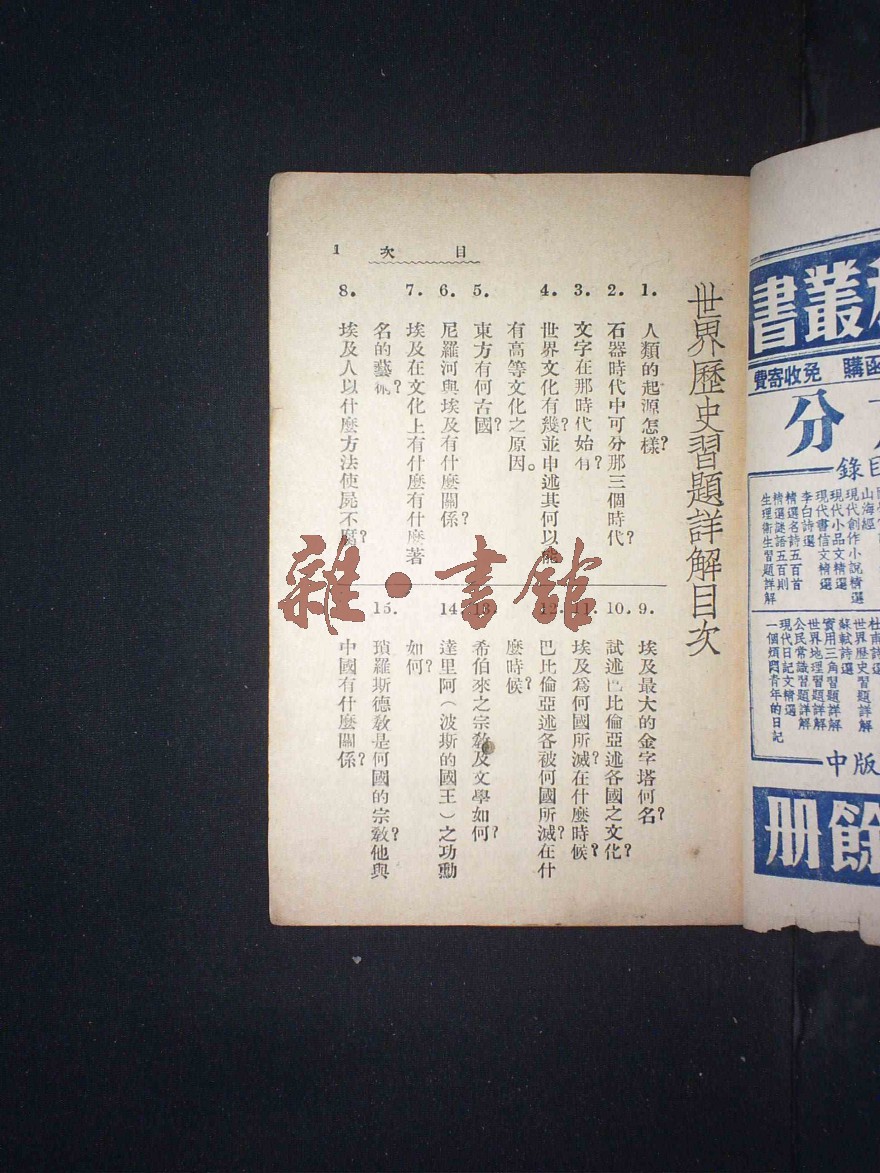 世界歷史習題詳解目次
目次 1
1. 人類的起源怎樣?
2. 石器時代中可分那三個時代?
3. 文字在那時代始有?
4. 世界文化有幾?並申述其何以能
有高等文化之原因。
5. 東方有何古國?
6. 尼羅河與埃及有什麼關係?
7. 埃及在文化上有什麼有什麼著
名的藝術?
8. 埃及人以什麼方法使屍不腐?
9. 埃及最大的金字塔何名?
10. 試述巴比倫亞述各國之文化?
11. 埃及爲何國所滅?在什麼時候?
12. 巴比倫亞述各被何國所滅?在什
麼時候?
13. 希伯來之宗敎及文學如何?
14. 達里阿(波斯的國王)之功勳
如何?
15. 瑣羅斯德敎是何國的宗敎?他與
中國有什麼關係?
雜·書館
叢書
函購 免收寄費
分
目錄
山海經
現代創作小說精選
現代小品文精選
現代書信文精選
李白詩選
精選名詩五百首
精選謎語五百則
生理衛生習題詳解
杜甫詩選
世界歷史習題詳解
蘇軾詩選
實用三角習題詳解
世界地理習題詳解
公民常識習題詳解
現代日記文精選
一個煩悶青年的日記
版中
餘册